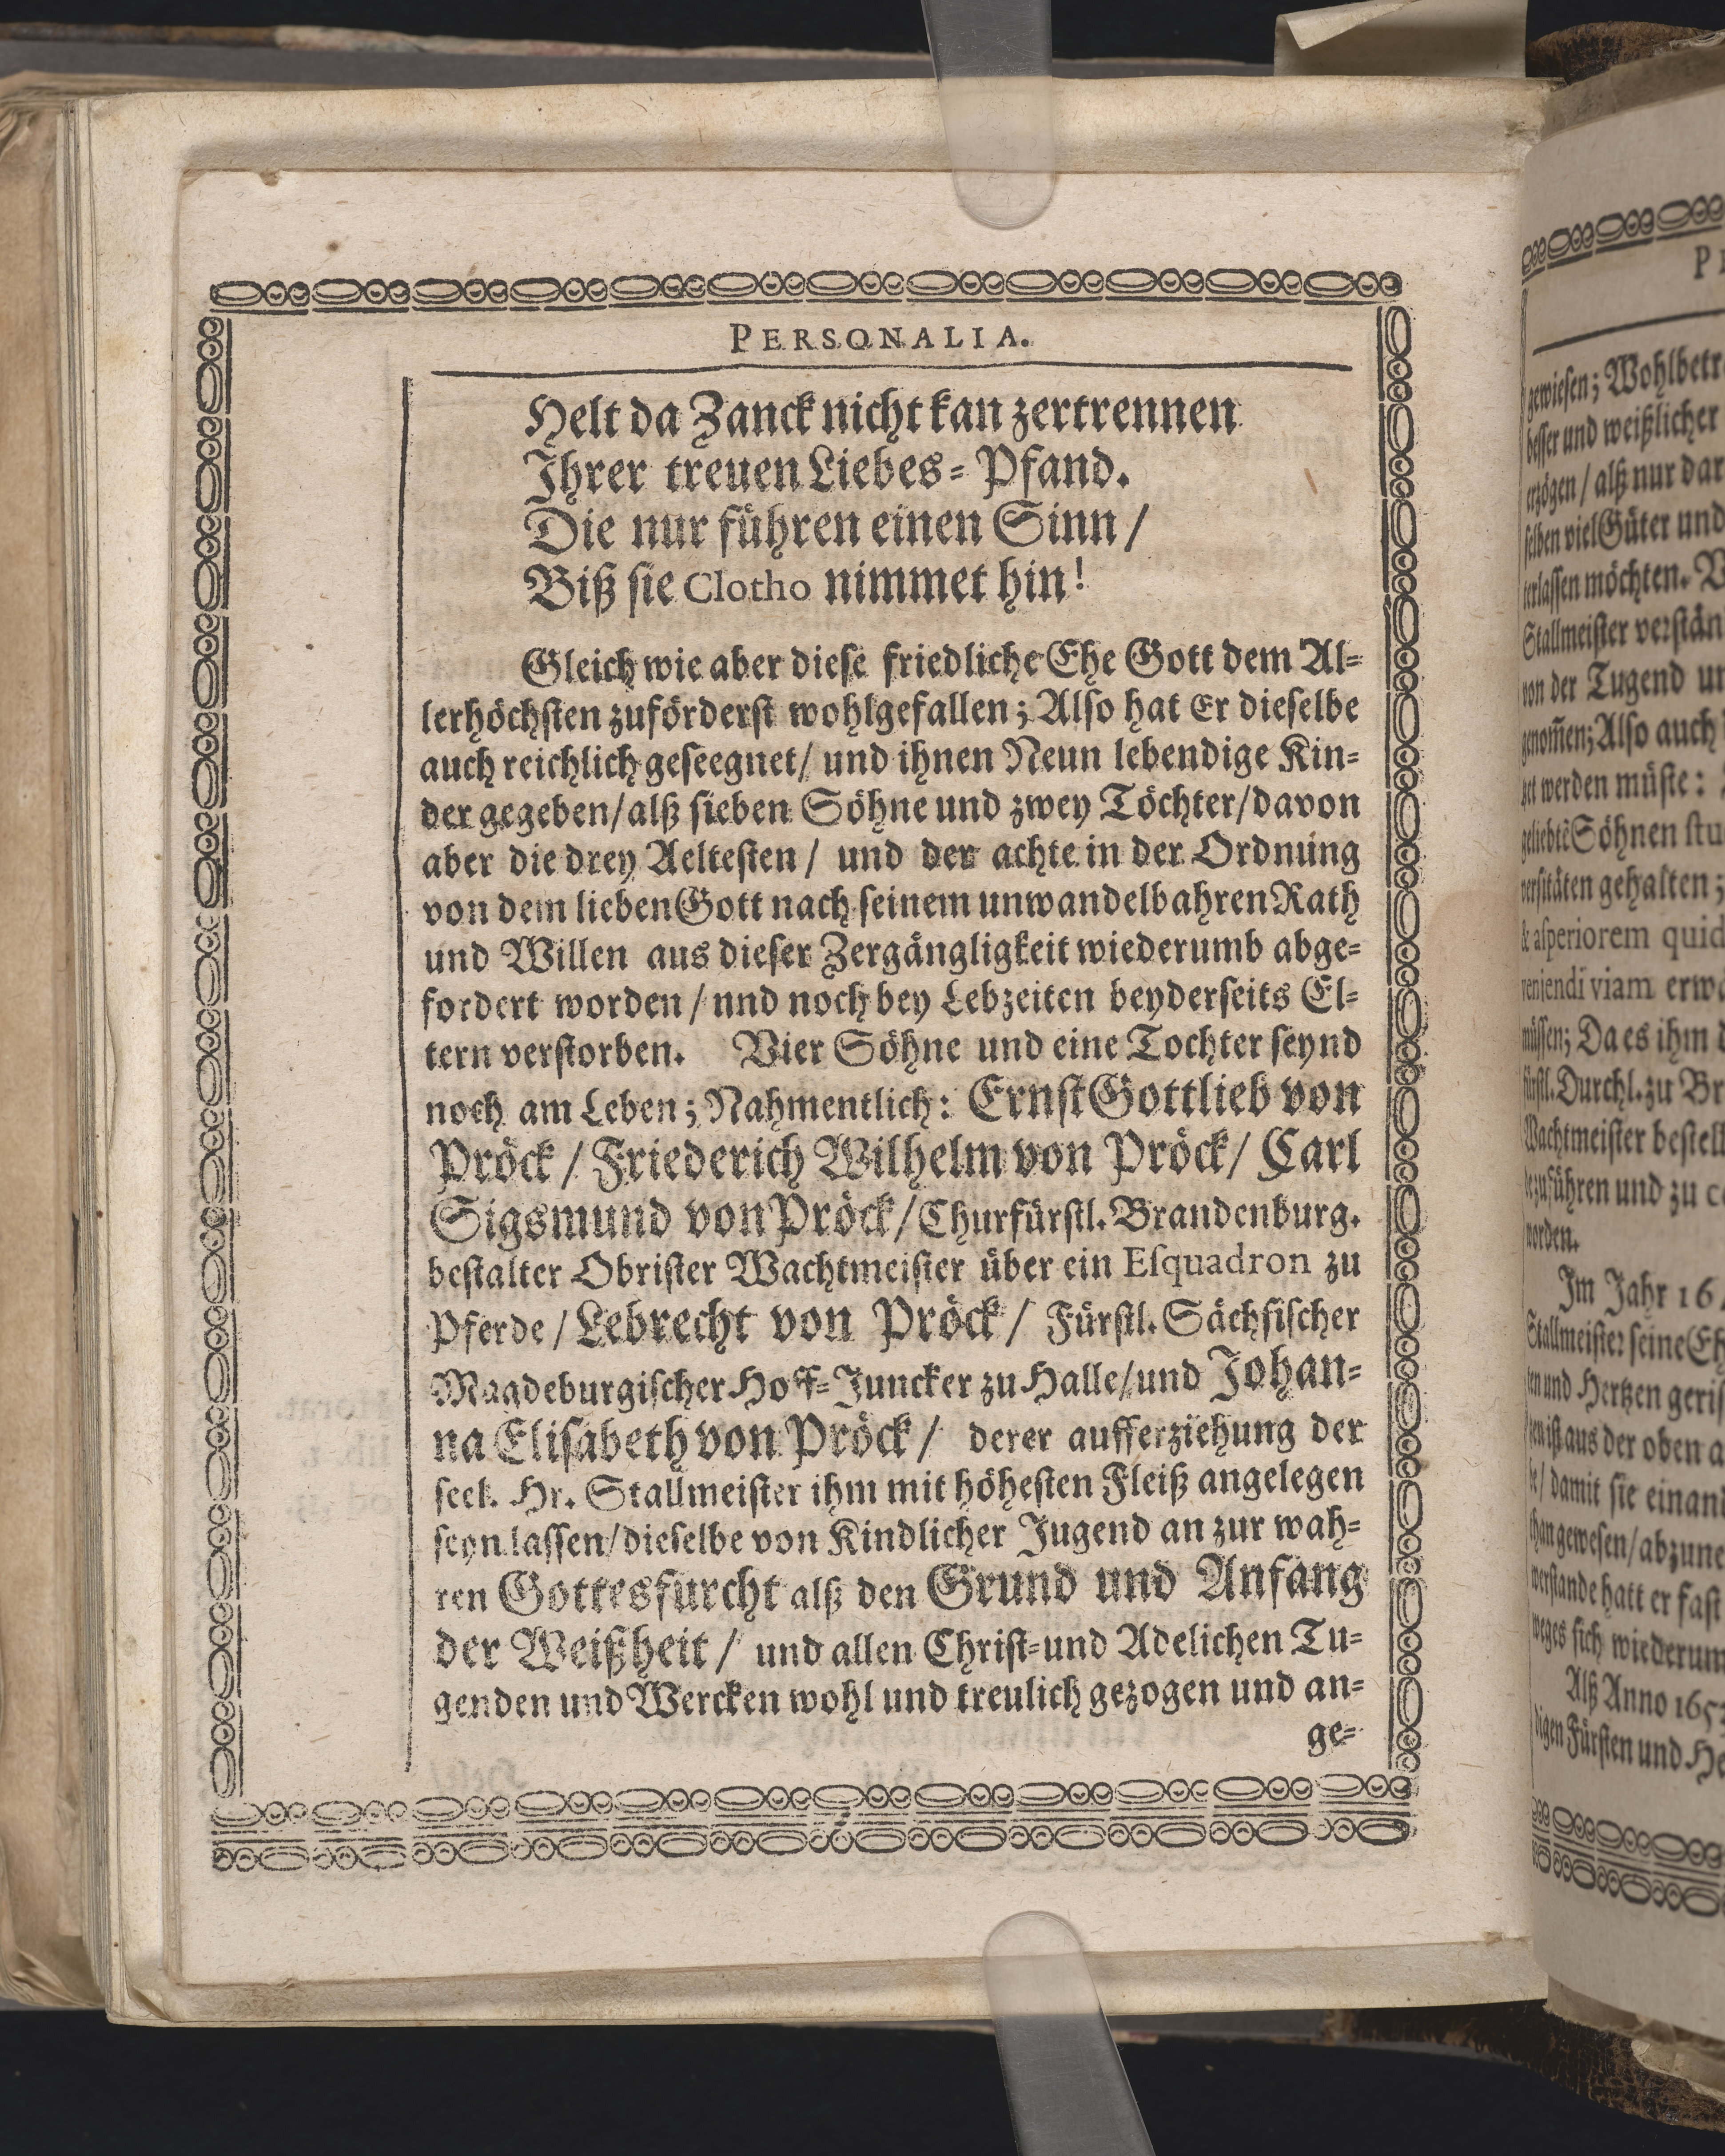 PERSONALIA.
Helt da Zanck nicht kan zertrennen
Ihrer treuen Liebes-Pfand.
Die nur führen einen Sinn /
Biß sie Clotho nimmet hin!
Gleich wie aber diese friedliche Ehe Gott dem Al-
lerhöchsten zuförderst wohlgefallen; Also hat Er dieselbe
auch reichlich geseegnet/ und ihnen Neun lebendige Kin-
der gegeben/alß sieben Söhne und zwey Töchter/davon
aber die drey Aeltesten / und der achte in der Ordnung
von dem lieben Gott nach seinem unwandelbahren Rath
und Willen aus dieser Zergängligkeit wiederumb abge-
fordert worden / nnd noch bey Lebzeiten beyderseits El-
tern verstorben. Vier Söhne und eine Tochter seynd
noch am Leben; Nahmentlich: Ernst Gottlieb von
Pröck / Friederich Wilhelm von Pröck/ Carl
Sigsmund von Pröck/Churfürstl. Brandenburg.
bestalter Obrister Wachtmeister über ein Esquadron zu
Pferde / Lebrecht von Pröck / Fürstl. Sächsischer
Magdeburgischer Hoff-Juncker zu Halle/und Johan-
na Elisabeth von Pröck / derer aufferziehung der
seel. Hr. Stallmeister ihm mit höhesten Fleiß angelegen
seyn lassen/dieselbe von Kindlicher Jugend an zur wah-
ren Gottesfurcht alß den Grund und Anfang
der Weißheit / und allen Christ-und Adelichen Tu-
genden und Wercken wohl und treulich gezogen und an-
ge-
gewiesen; Wohlbetr
besser und weißlicher
erzögen / alß nur dar
selben viel Güter und
terlassen möchten.
Stallmeister verstän
von der Tugend
genom̃en; Also auch
werden müste:
Söhnen stu
gehalten;
& asperiorem quid
viam erwa
müssen; Da es ihm
Durchl. zu Br
Wachtmeister bestell
führen und zu
worden.
Im Jahr 16
Stallmeister seine Eh
und Hertzen geris
ist aus der oben a
damit sie einan
gewesen/abzune
verstande hatt er fast
weges sich wiederum
Alß Anno 165
digen Fürsten und He